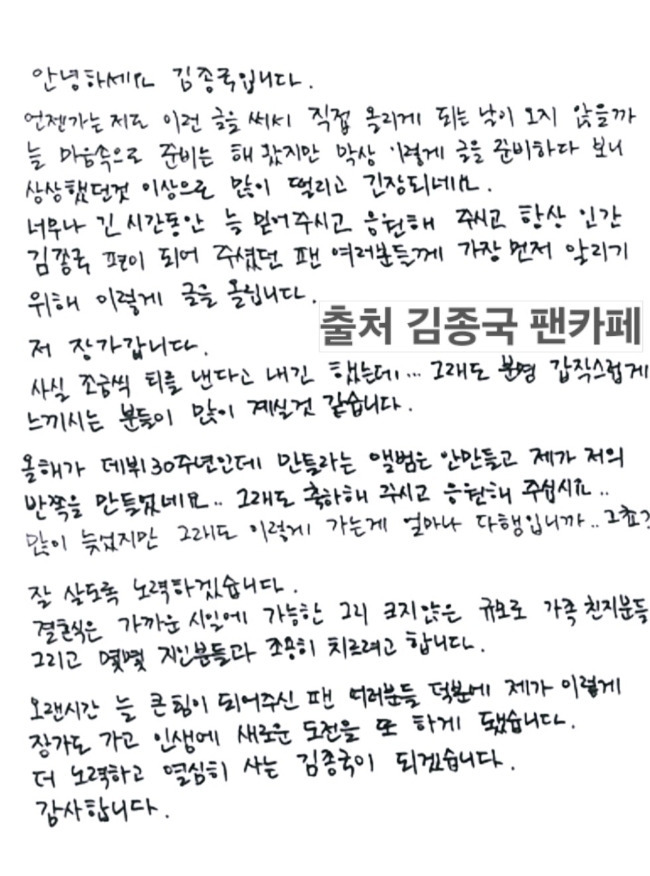 안녕하세요 김종국입니다.
언젠가는 저도 이런 글을 써서 직접 올리게 되는 날이 오지 않을까
늘 마음속으로 준비는 해 왔지만 막상 이렇게 글을 준비하다 보니
상상했던것 이상으로 많이 떨리고 긴장되네요.
너무나 긴 시간동안 늘 믿어주시고 응원해 주시고 항상 인간
김종국 편이 되어 주셨던 팬 여러분들께 가장 먼저 알리기
위해 이렇게 글을 올립니다.
출처 김종국 팬카페
저 장가갑니다.
사실 조금씩 티를 낸다고 내긴 했는데... 그래도 분명 갑작스럽게
느끼시는 분들이 많이 계실것 같습니다.
올해가 데뷔30주년인데 만들라는 앨범은 안만들고 제가 저의
반쪽을 만들었네요.. 그래도 축하해 주시고 응원해 주십시요..
많이 늦었지만 그래도 이렇게 가는게 얼마나 다행입니까.. 그쵸?
잘 살도록 노력하겠습니다.
결혼식은 가까운 시일에 가능한 그리 크지않은 규모로 가족 친지분들
그리고 몇몇 지인분들과 조용히 치르려고 합니다.
오랜시간 늘 큰힘이 되어주신 팬 여러분들 덕분에 제가 이렇게
장가도 가고 인생에 새로운 도전을 또 하게 됐습니다.
더 노력하고 열심히 사는 김종국이 되겠습니다.
감사합니다.